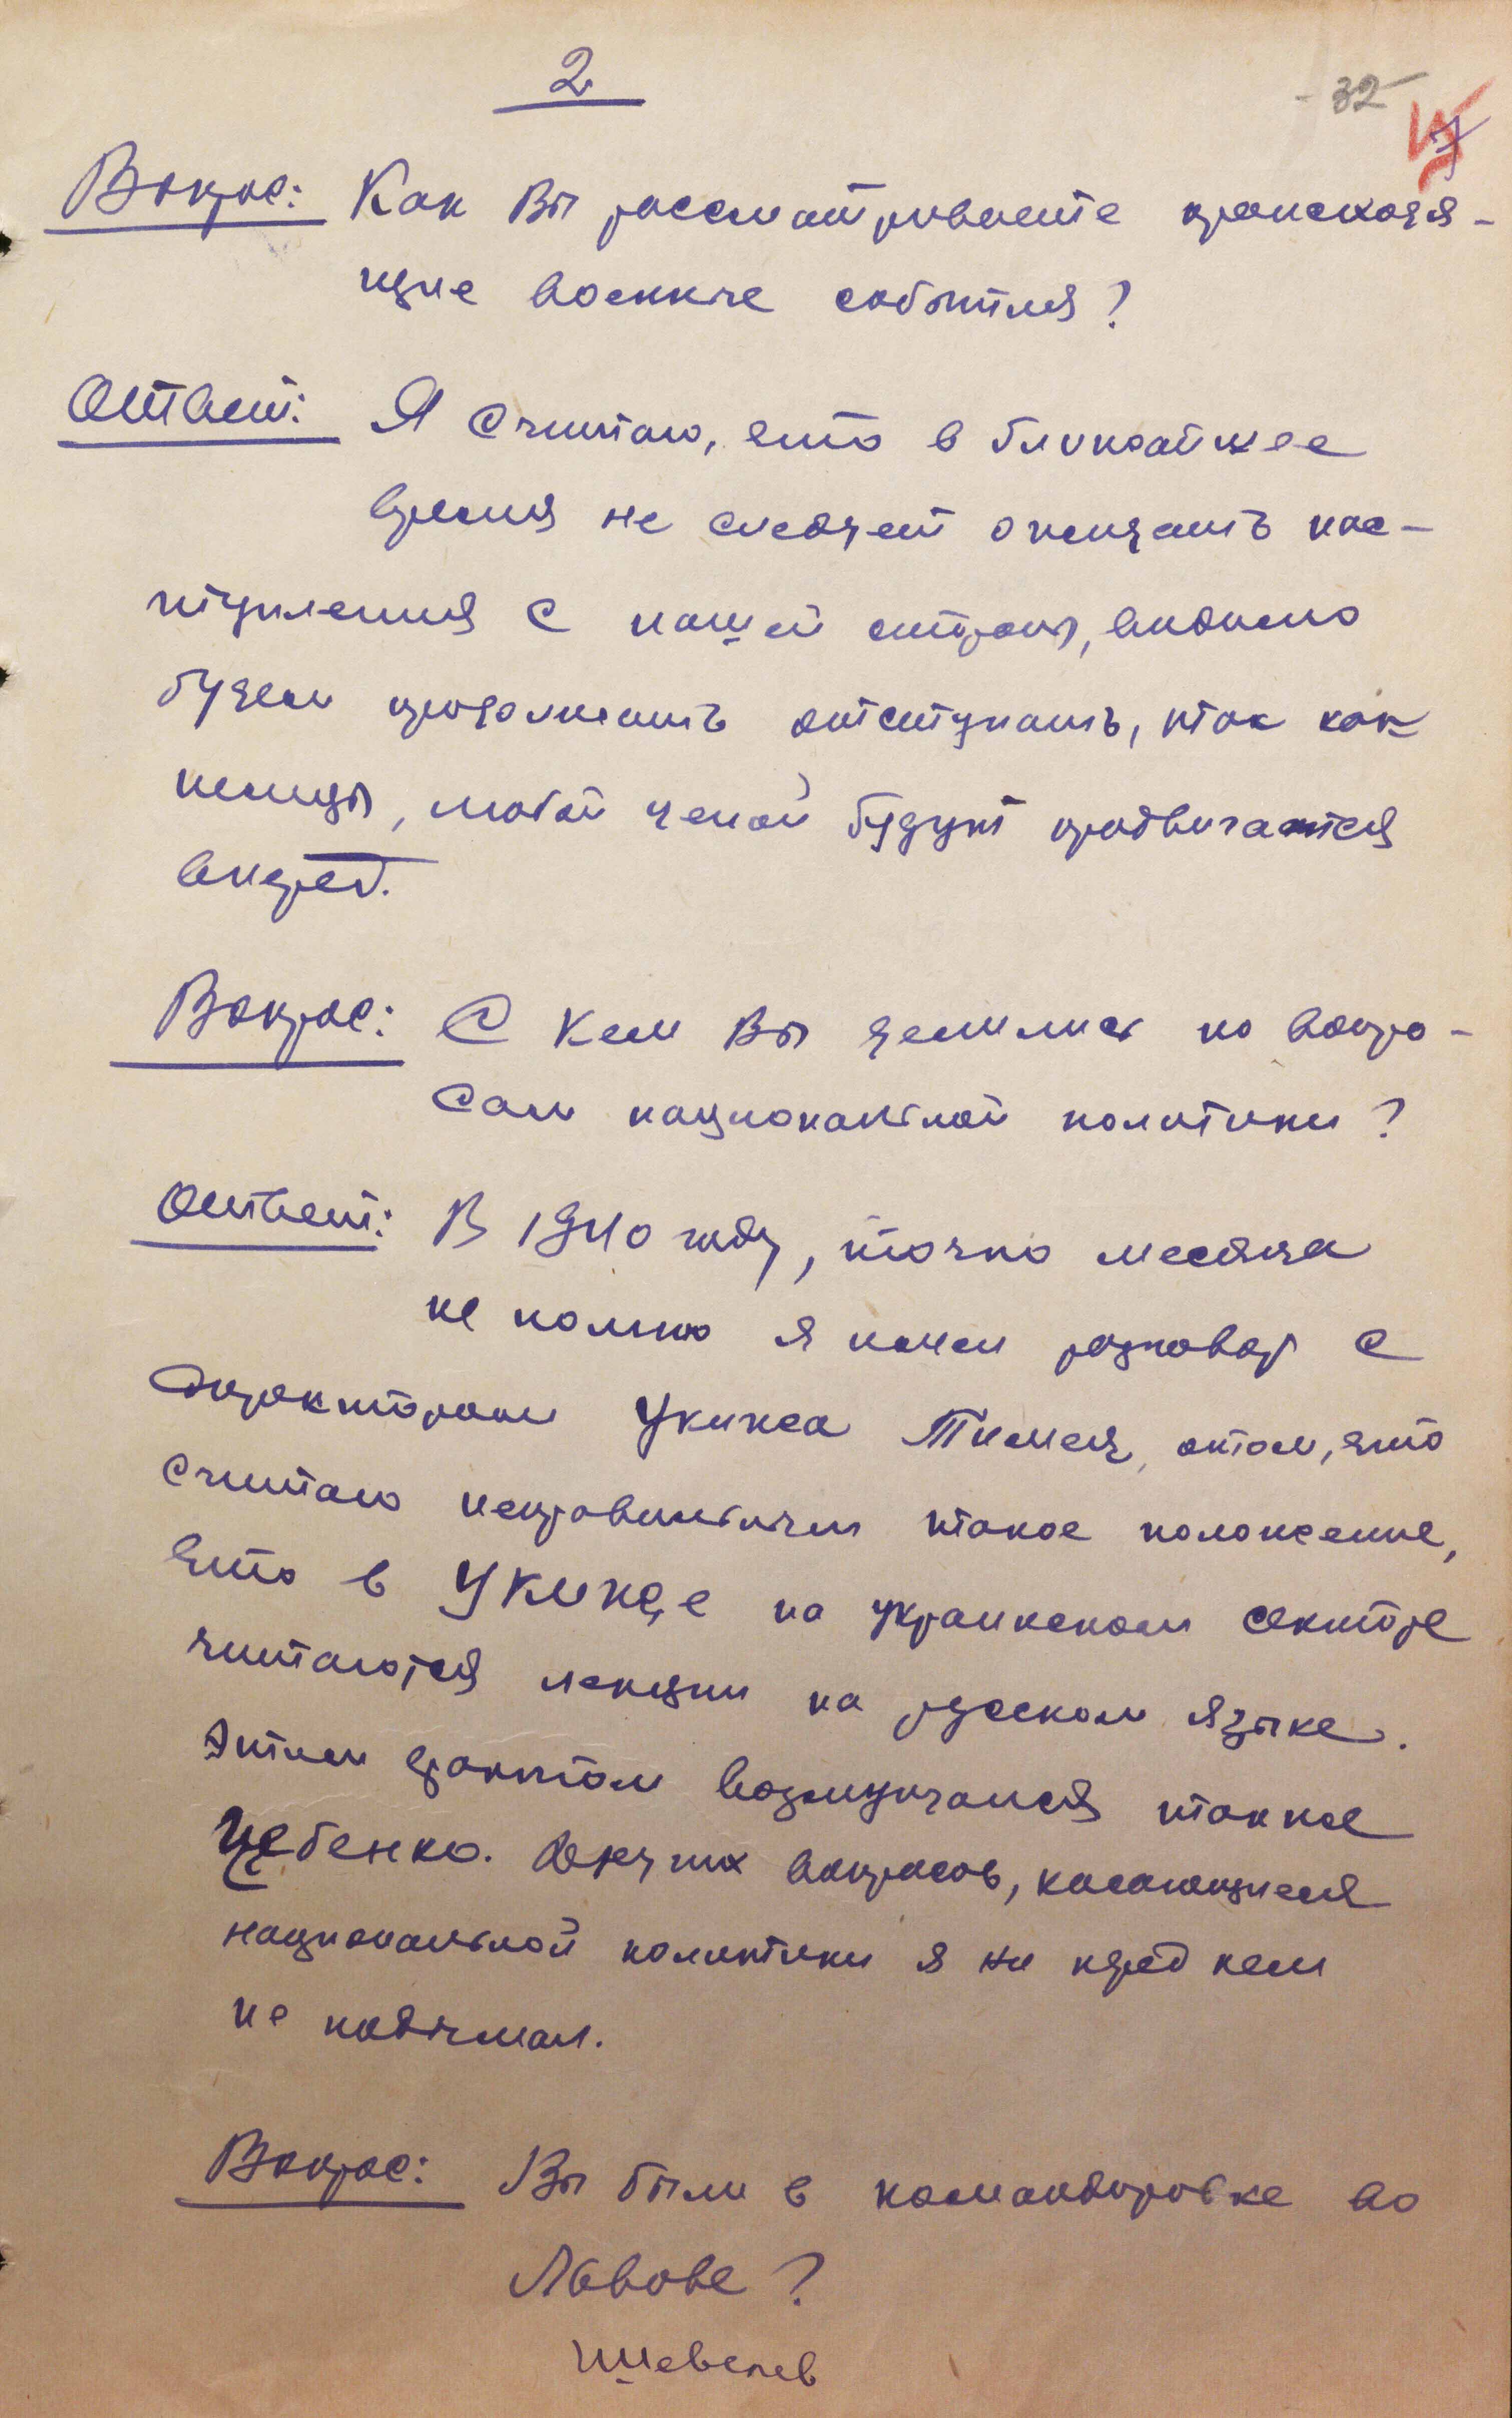 2
32
Вопрос: Как Вы рассматриваете происходя-
щие военные события?
Ответ: Я считаю, что в ближайшее
время не следует ожидать нас-
тупления с нашей стороны, видимо
будем продолжать отступать, так как
немцы, любой ценой будут продвигатся
вперед.
Вопрос: С кем Вы делились по вопро-
сам национальной политики?
Ответ: В 1940 году, точно месяца
не помню я имел разговор с
директором Укинса отом, что
считаю неправильным такое положение,
что в Укинсе на украинском секторе
читаются лекции на русском языке.
Этим фактом возмущался также
Щебенко. Других вопросов, касающиеся
национальной политики я ни перед кем
не поднимал.
Вопрос: Вы были в командировке во
Львове?
Шевелев